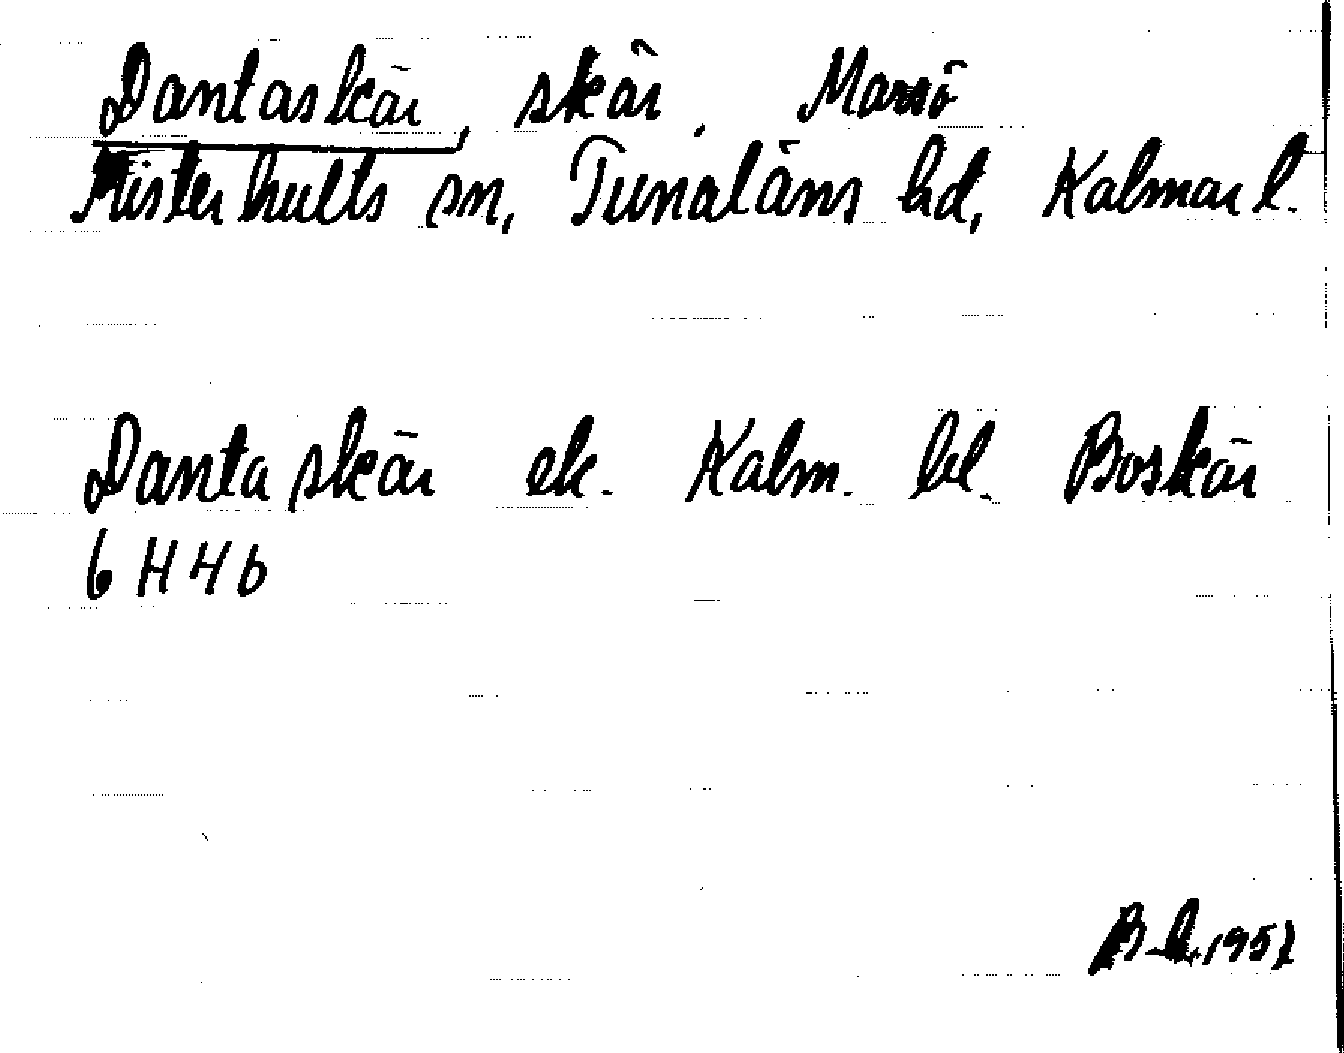 Dantaskär, skär. Marsö
Misterhults sn, Tunaläns hd, Kalmar l.
Dantaskär ek. Kalm. bl. Boskär
6 H 4 b
1957